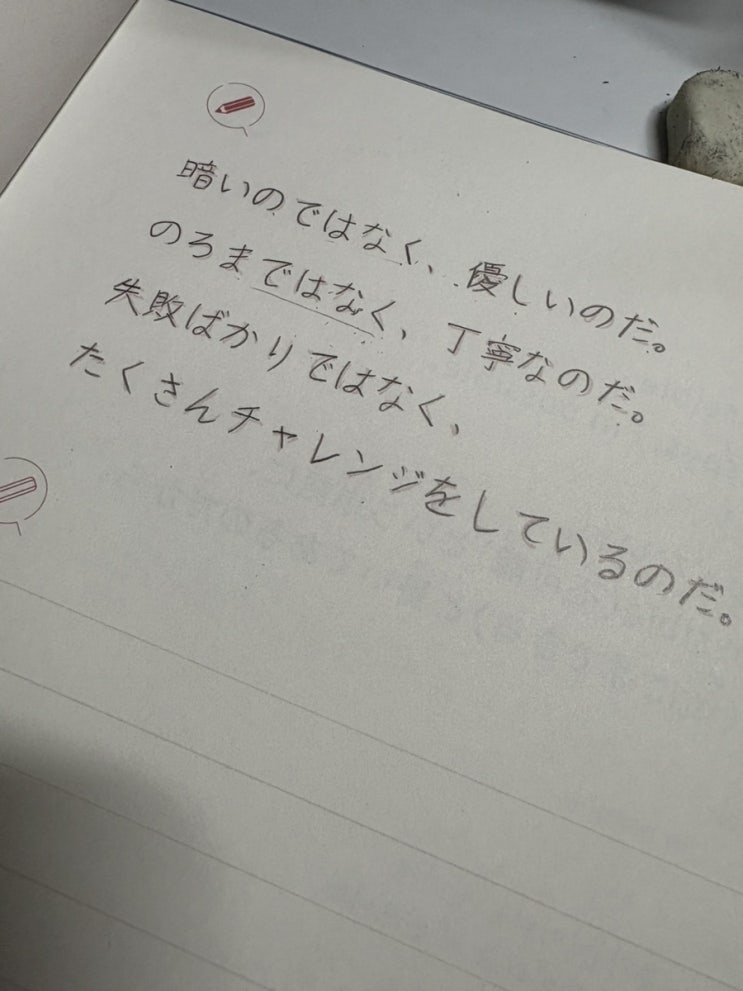 暗いのではなく、優しいのだ。
のろまではなく、丁寧なのだ。
失敗ばかりではなく、
たくさんチャレンジをしているのだ。